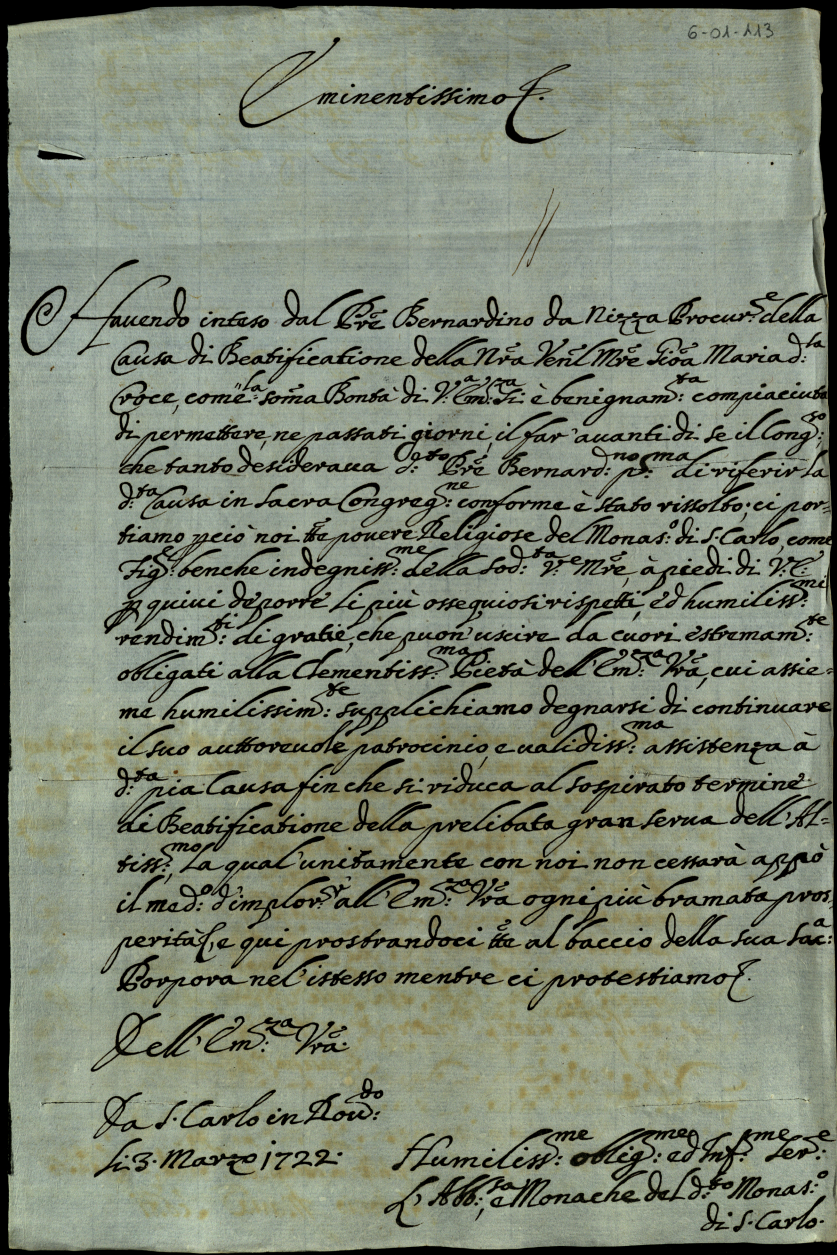 6-01-113
Eminentissimo
Havendo inteso dal Pre Bernardino da Nizza Procur:e della
Causa di Beatificatione della Nra Venl Mre Gioa Maria d:ta
Croce, come la soma Bontà di V:a Em:za si è benignam:ta compiaciuta
di permettere, ne passati giorni, il far' avanti di se il Cong:so
che tanto desiderava d:to Pre Bernard:no p:ma di riferir la
d:ta Causa in Sacra Congreg:ne conforme è stato rissolto; ci por-
tiamo pciò noi tte povere Religiose del Monas:o di S. Carlo, come
Fig:e benche indegniss:me della Sod:ta V:e Mre, à piedi di V: E:
p quivi deporre li più ossequiosi rispetti, ed humiliss:mi
rendim:ti di gratie, che puon' uscire da cuori estremam:te
obligati alla Clementiss:ma Pietà dell' Em:za Vra, cui assie-
me humilissim:te supplichiamo degnarsi di continuare
il suo auttorevole patrocinio, e validiss:ma assistenza à
d:ta pia Causa fin che si riduca al sospirato termine
di Beatificatione della prelibata gran serva dell' Al-
tiss:mo, La qual' unitamente con noi non cessarà appò
il med:o d'implor:r all' Em:za Vra ogni più bramata pros
perità, e qui prostrandoci tte al baccio della sua Sac:a
Porpora nel' istesso mentre ci protestiamo
Dell' Em:za Vra
Da S. Carlo in Rov:do
li 3. Marzo 1722.
Humiliss:me oblig:me ed Inf:me Ser:e
L' Abb:sa, e Monache del d:to Monas:o
di S. Carlo.